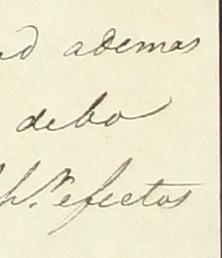 ademas
debo
efectos